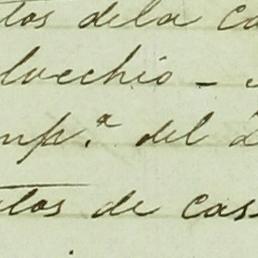 tos dela ca
lucchio -
mp.ª del
tos de cas